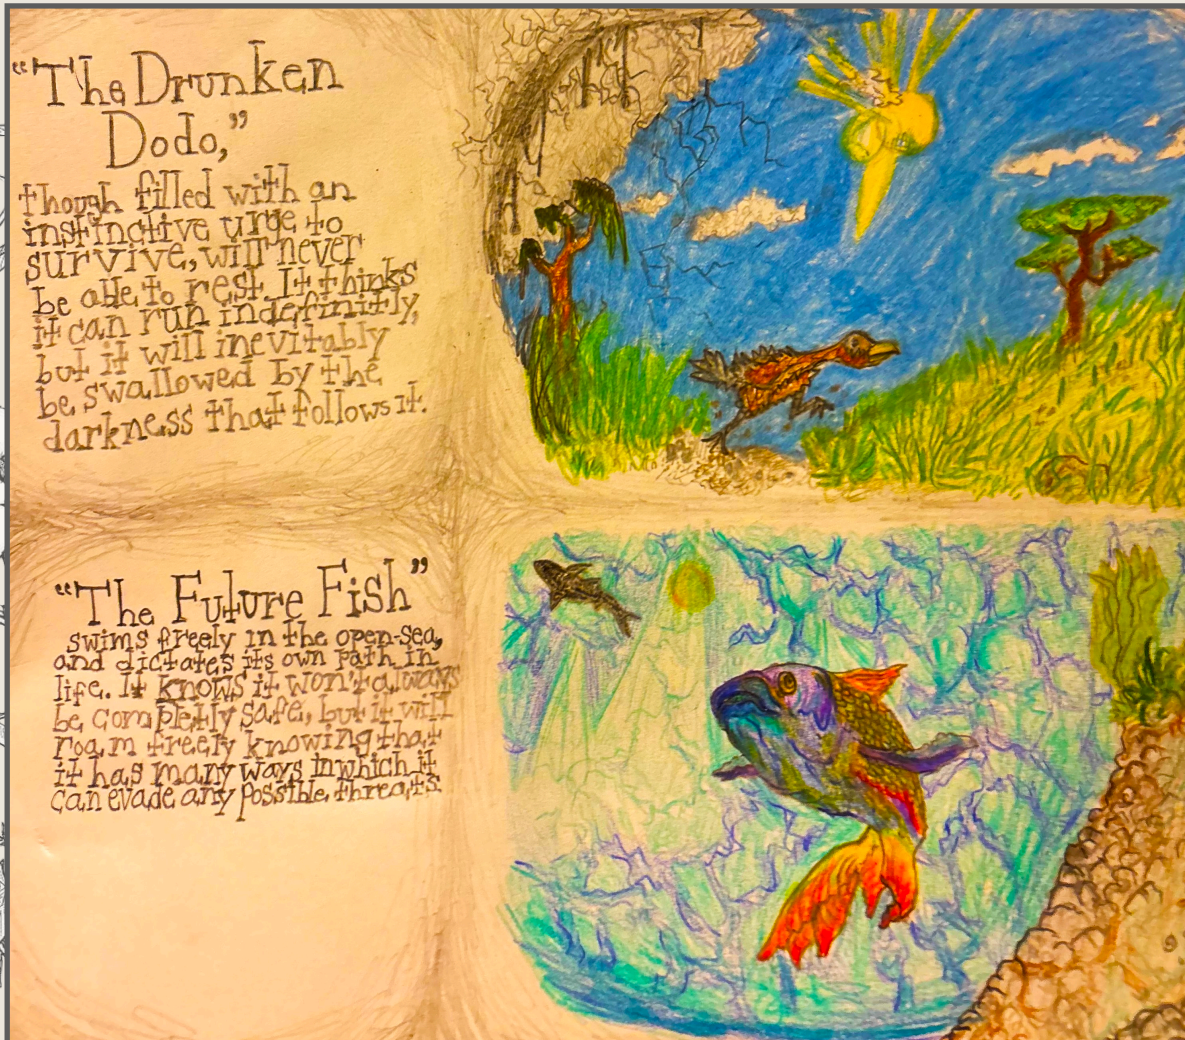 "The Drunken
Dodo,"
though filled with an
instinctive urge to
survive, will never
be able to rest. It thinks
it can run indefinitly,
but it will inevitably
be swallowed by the
darkness that follows it.
"The Future Fish"
swims freely in the open-sea,
and dictates its own path in
life. It knows it won't always
be completly safe, but it will
roam freely knowing that
it has many ways in which it
can evade any possible threats.